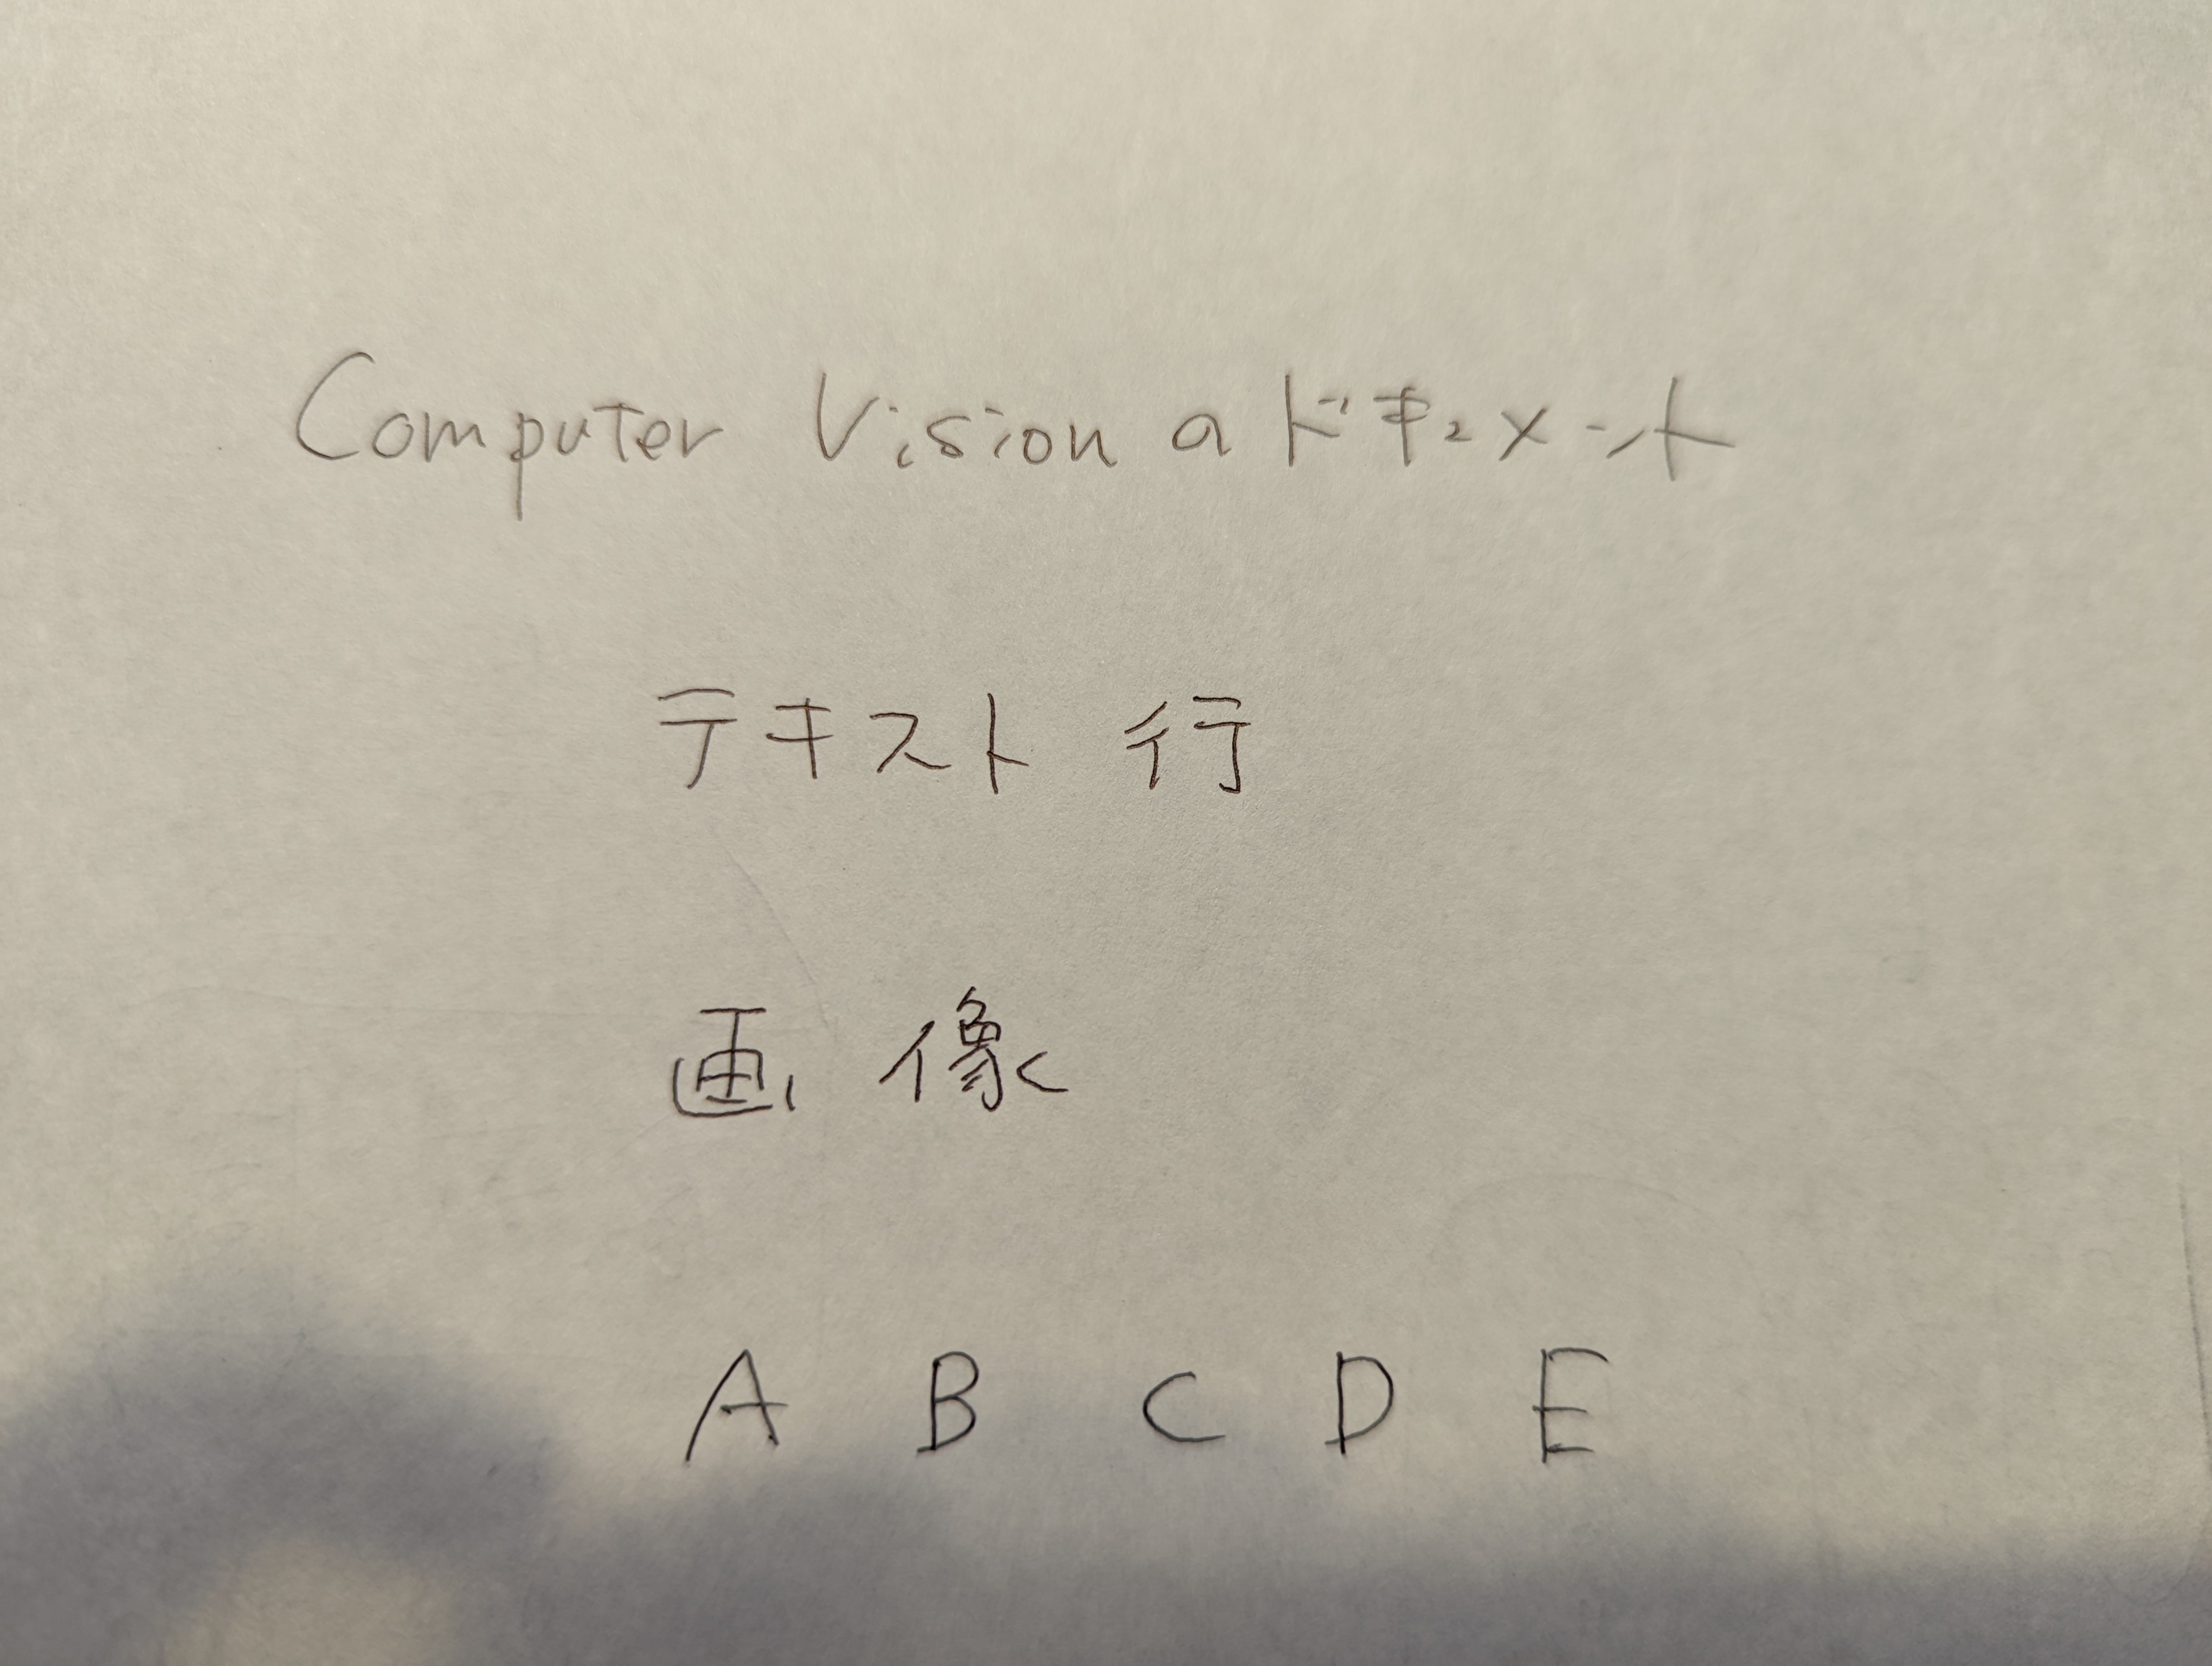 Computer Vision a ドキュメント
テキスト 行
画像
A B C D E